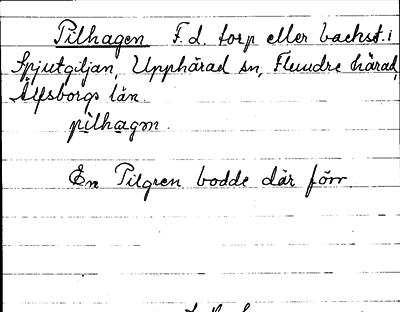 Pilhagen F.d. torp eller backst. i
Spjutgiljan, Upphärad sn, Flundre härad,
Älfsborgs län.
pilhagm.
En Pilgren bodde där förr.